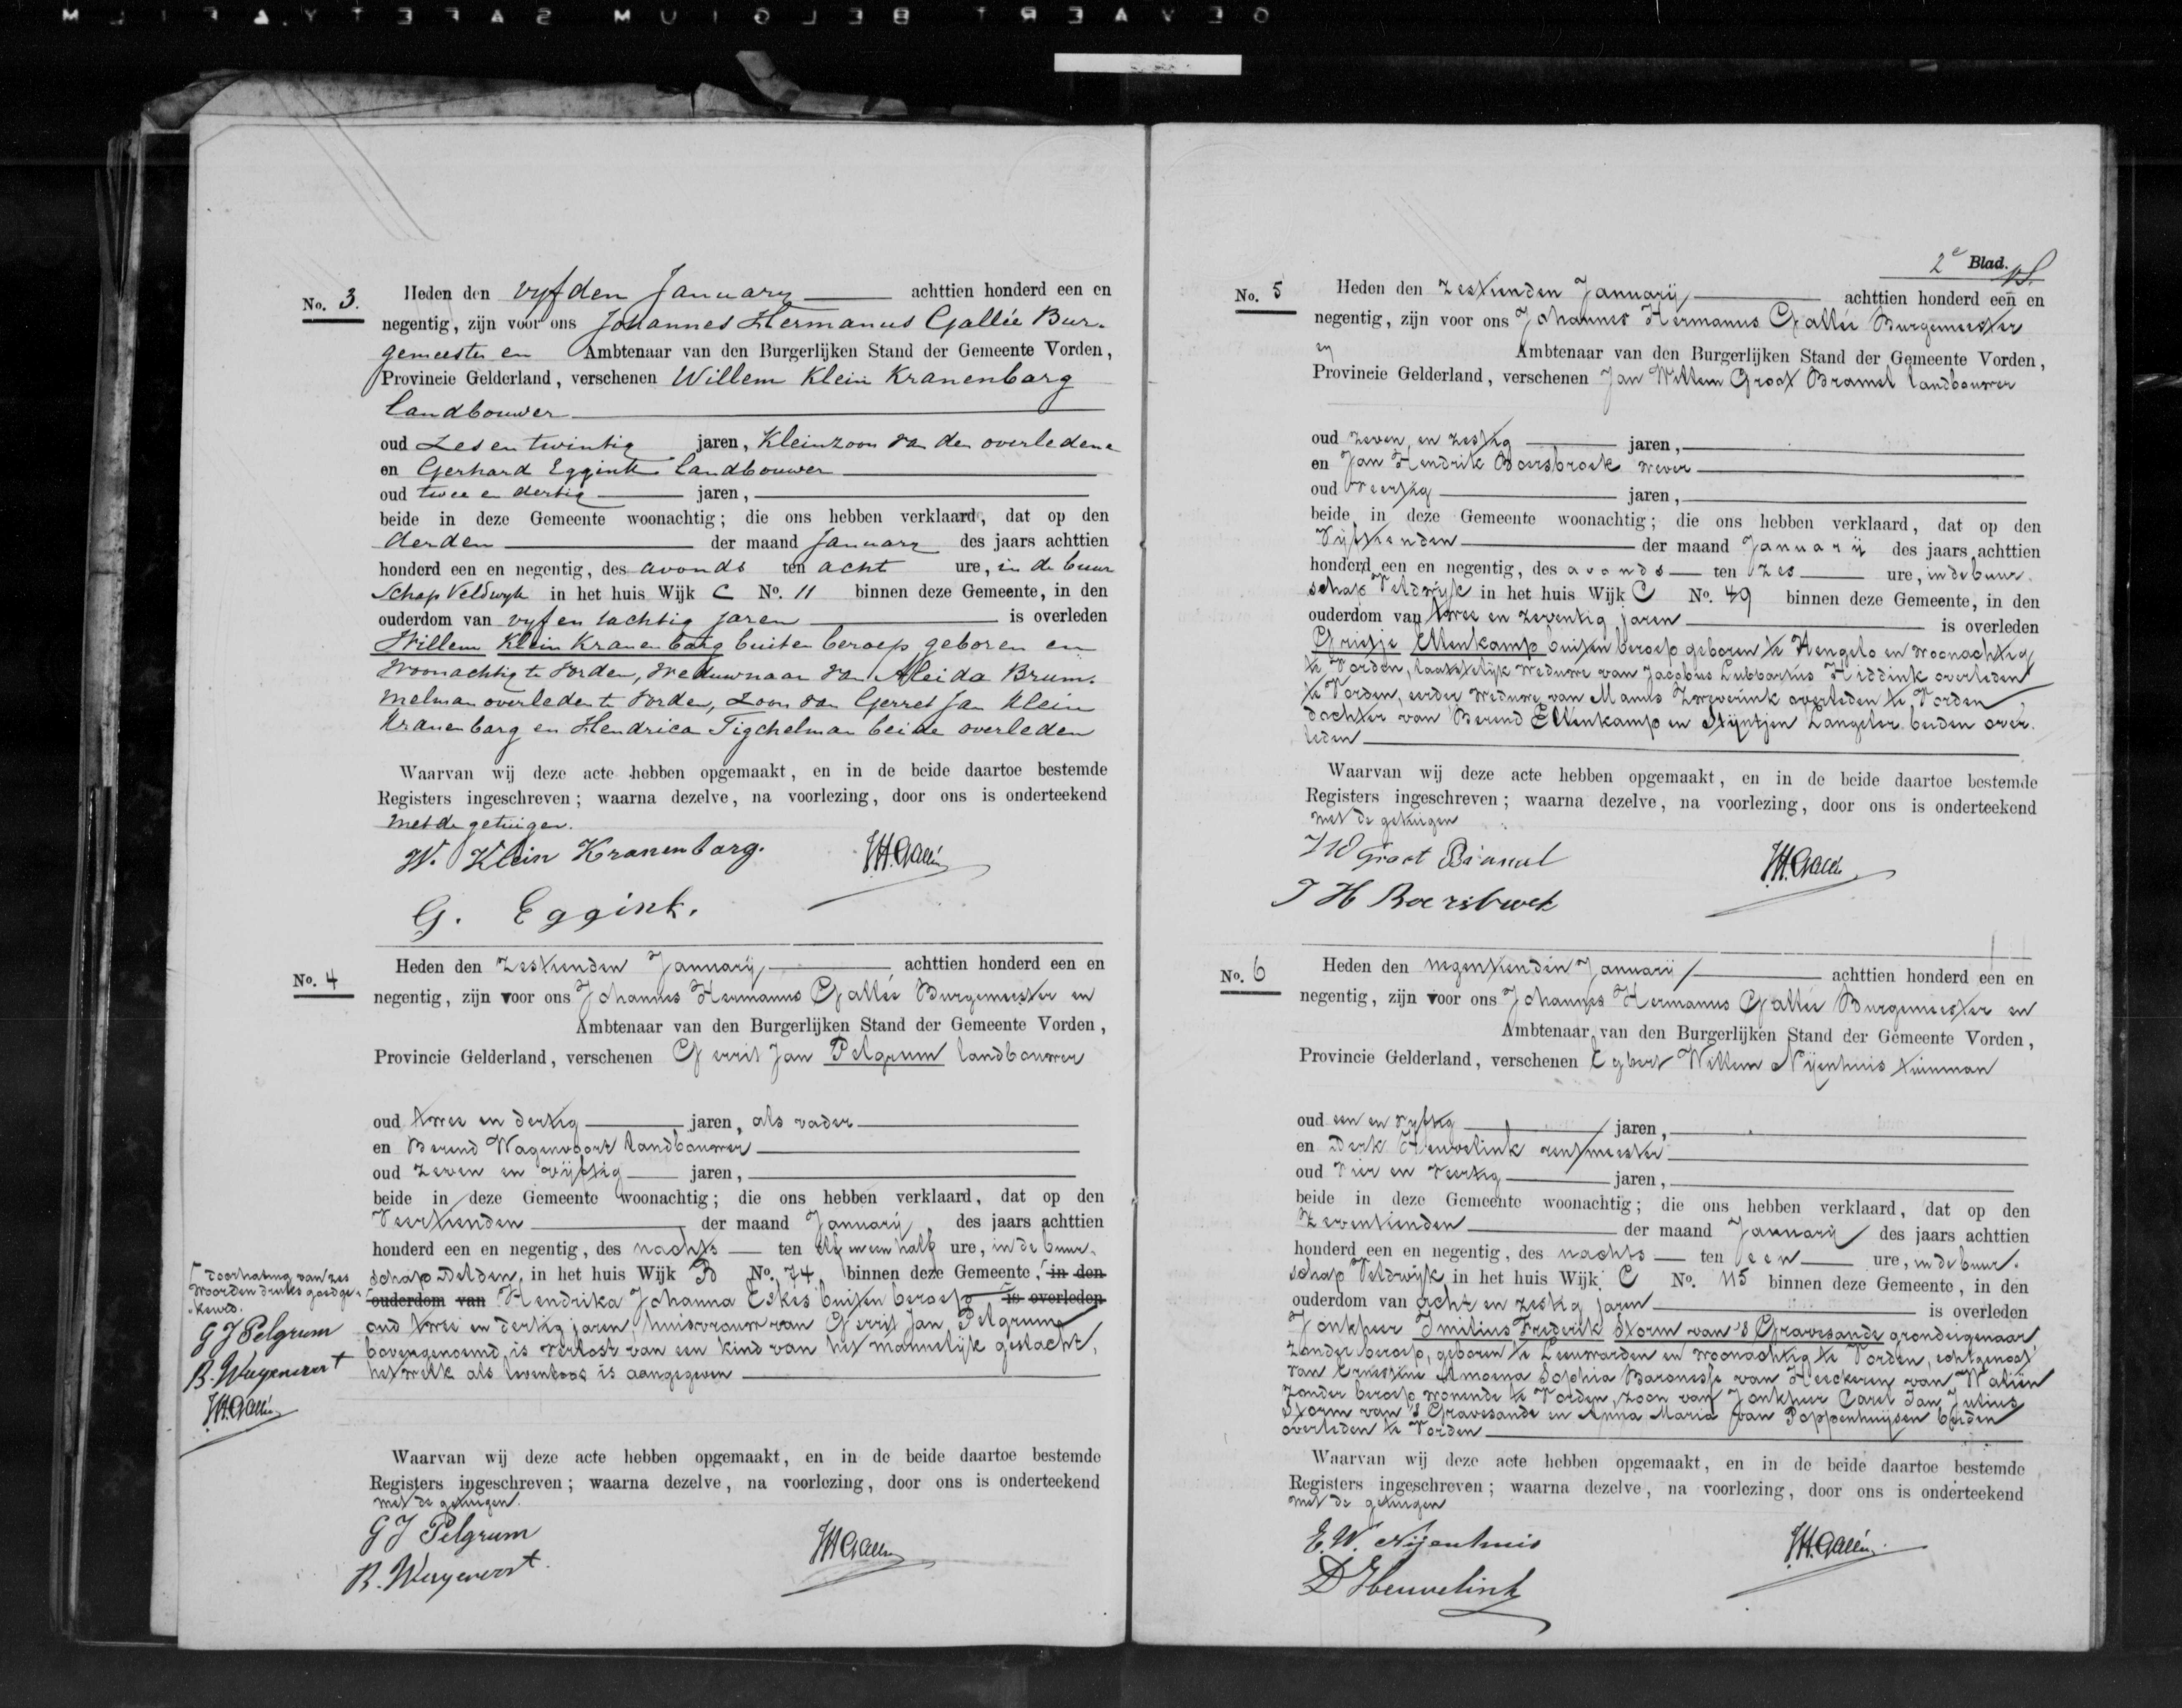 DEVAERT BELGIUM SAFETY FILM
No. 3.
Heden den vyfden January achttien honderd een en
negentig, zijn voor ons Johannes Hermanus Gallée Bur-
gemeester en Ambtenaar van den Burgerlijken Stand der Gemeente Vorden,
Provincie Gelderland, verschenen Willem Klein Kranenbarg
landbouwer
oud zes en twintig jaren, Kleinzoon van den overledene
en Gerhard Eggink landbouwer
oud twee en dertig jaren,
beide in deze Gemeente woonachtig; die ons hebben verklaard, dat op den
derden der maand January des jaars achttien
honderd een en negentig, des avonds ten acht ure, in de buur
schap Veldwyk in het huis Wijk C No. 11 binnen deze Gemeente, in den
ouderdom van vyf en tachtig jaren is overleden
Willem Klein Kranenbarg buiten beroep geboren en
woonachtig te Vorden, Weduwnaar van Aleida Brum-
melman overleden te Vorden, Zoon van Gerret Jan Klein
Kranenbarg en Hendrica Tigchelman beide overleden
Waarvan wij deze acte hebben opgemaakt, en in de beide daartoe bestemde
Registers ingeschreven; waarna dezelve, na voorlezing, door ons is onderteekend
met de getuigen.
W. Klein Kranenbarg. JH. Gallée
G. Eggink.
No. 4
Heden den zestienden January achttien honderd een en
negentig, zijn voor ons Johannes Hermanus Gallée Burgemeester en
Ambtenaar van den Burgerlijken Stand der Gemeente Vorden,
Provincie Gelderland, verschenen Gerrit Jan Pelgrum landbouwer
oud twee en dertig jaren, als vader
en Berend Wagenvoort landbouwer
oud zeven en vijftig jaren,
beide in deze Gemeente woonachtig; die ons hebben verklaard, dat op den
Veertienden der maand Januarij des jaars achttien
honderd een en negentig, des nachts ten elf en een half ure, in de buur-
schap Delden in het huis Wijk B No. 74 binnen deze Gemeente, in den
ouderdom van Hendrika Johanna Eskes buiten beroep is overleden
oud twee en dertig jaren, huisvrouw van Gerrit Jan Pelgrum
bovengenoemd, is verlost van een kind van het mannelijk geslacht,
hetwelk als levenloos is aangegeven
Doorhaling van zes
woorden druks goedge-
keurd.
G J Pelgrum
B. Wagenvoort
JH. Gallée
Waarvan wij deze acte hebben opgemaakt, en in de beide daartoe bestemde
Registers ingeschreven; waarna dezelve, na voorlezing, door ons is onderteekend
met de getuigen.
G J Pelgrum JH Gallée
B. Wagenvoort.
2e Blad.
No. 5
Heden den zestienden Januarij achttien honderd een en
negentig, zijn voor ons Johannes Hermanus Gallée Burgemeester
en Ambtenaar van den Burgerlijken Stand der Gemeente Vorden,
Provincie Gelderland, verschenen Jan Willem Groot Bramel landbouwer
oud zeven en zestig jaren,
en Jan Hendrik Boersbroek wever
oud Veertig jaren,
beide in deze Gemeente woonachtig; die ons hebben verklaard, dat op den
Vijftienden der maand Januarij des jaars achttien
honderd een en negentig, des avonds ten zes ure, in de buur-
schap Veldwijk in het huis Wijk C No. 49 binnen deze Gemeente, in den
ouderdom van twee en zeventig jaren is overleden
Grietje Ellenkamp buiten beroep geboren te Hengelo en woonachtig
te Vorden, laatstelijk weduwe van Jacobus Lubbartus Hiddink overleden
te Vorden, eerder weduwe van Manus Zweverink overleden te Vorden
dochter van Berend Ellenkamp en Stijntjen Langeler beiden over-
leden
Waarvan wij deze acte hebben opgemaakt, en in de beide daartoe bestemde
Registers ingeschreven; waarna dezelve, na voorlezing, door ons is onderteekend
met de getuigen
J W Groot Bramel JH. Gallée
J H Boersbroek
No. 6
Heden den negentienden Januarij achttien honderd een en
negentig, zijn voor ons Johannes Hermanus Gallée Burgemeester en
Ambtenaar van den Burgerlijken Stand der Gemeente Vorden,
Provincie Gelderland, verschenen Egbert Willem Nijenhuis tuinman
oud een en vyftig jaren,
en Derk Heuvelink rentmeester
oud Vier en Veertig jaren,
beide in deze Gemeente woonachtig; die ons hebben verklaard, dat op den
Zeventienden der maand Januarij des jaars achttien
honderd een en negentig, des nachts ten een ure, in de buur-
schap Veldwijk in het huis Wijk C No. 115 binnen deze Gemeente, in den
ouderdom van acht en zestig jaren is overleden
Jonkheer Imilius Frederik Storm van 's Gravesande grondeigenaar
zonder beroep, geboren te Leeuwarden en woonachtig te Vorden, echtgenoot
van Ernestine Amoena Sophia Baronesse van Heeckeren van Waliën
zonder beroep wonende te Vorden, zoon van Jonkheer Carel Jan Julius
Storm van 's Gravesande en Anna Maria van Poppenhuijsen beiden
overleden te Vorden
Waarvan wij deze acte hebben opgemaakt, en in de beide daartoe bestemde
Registers ingeschreven; waarna dezelve, na voorlezing, door ons is onderteekend
met de getuigen
E. W. Nijenhuis JH. Gallée
D Heuvelink